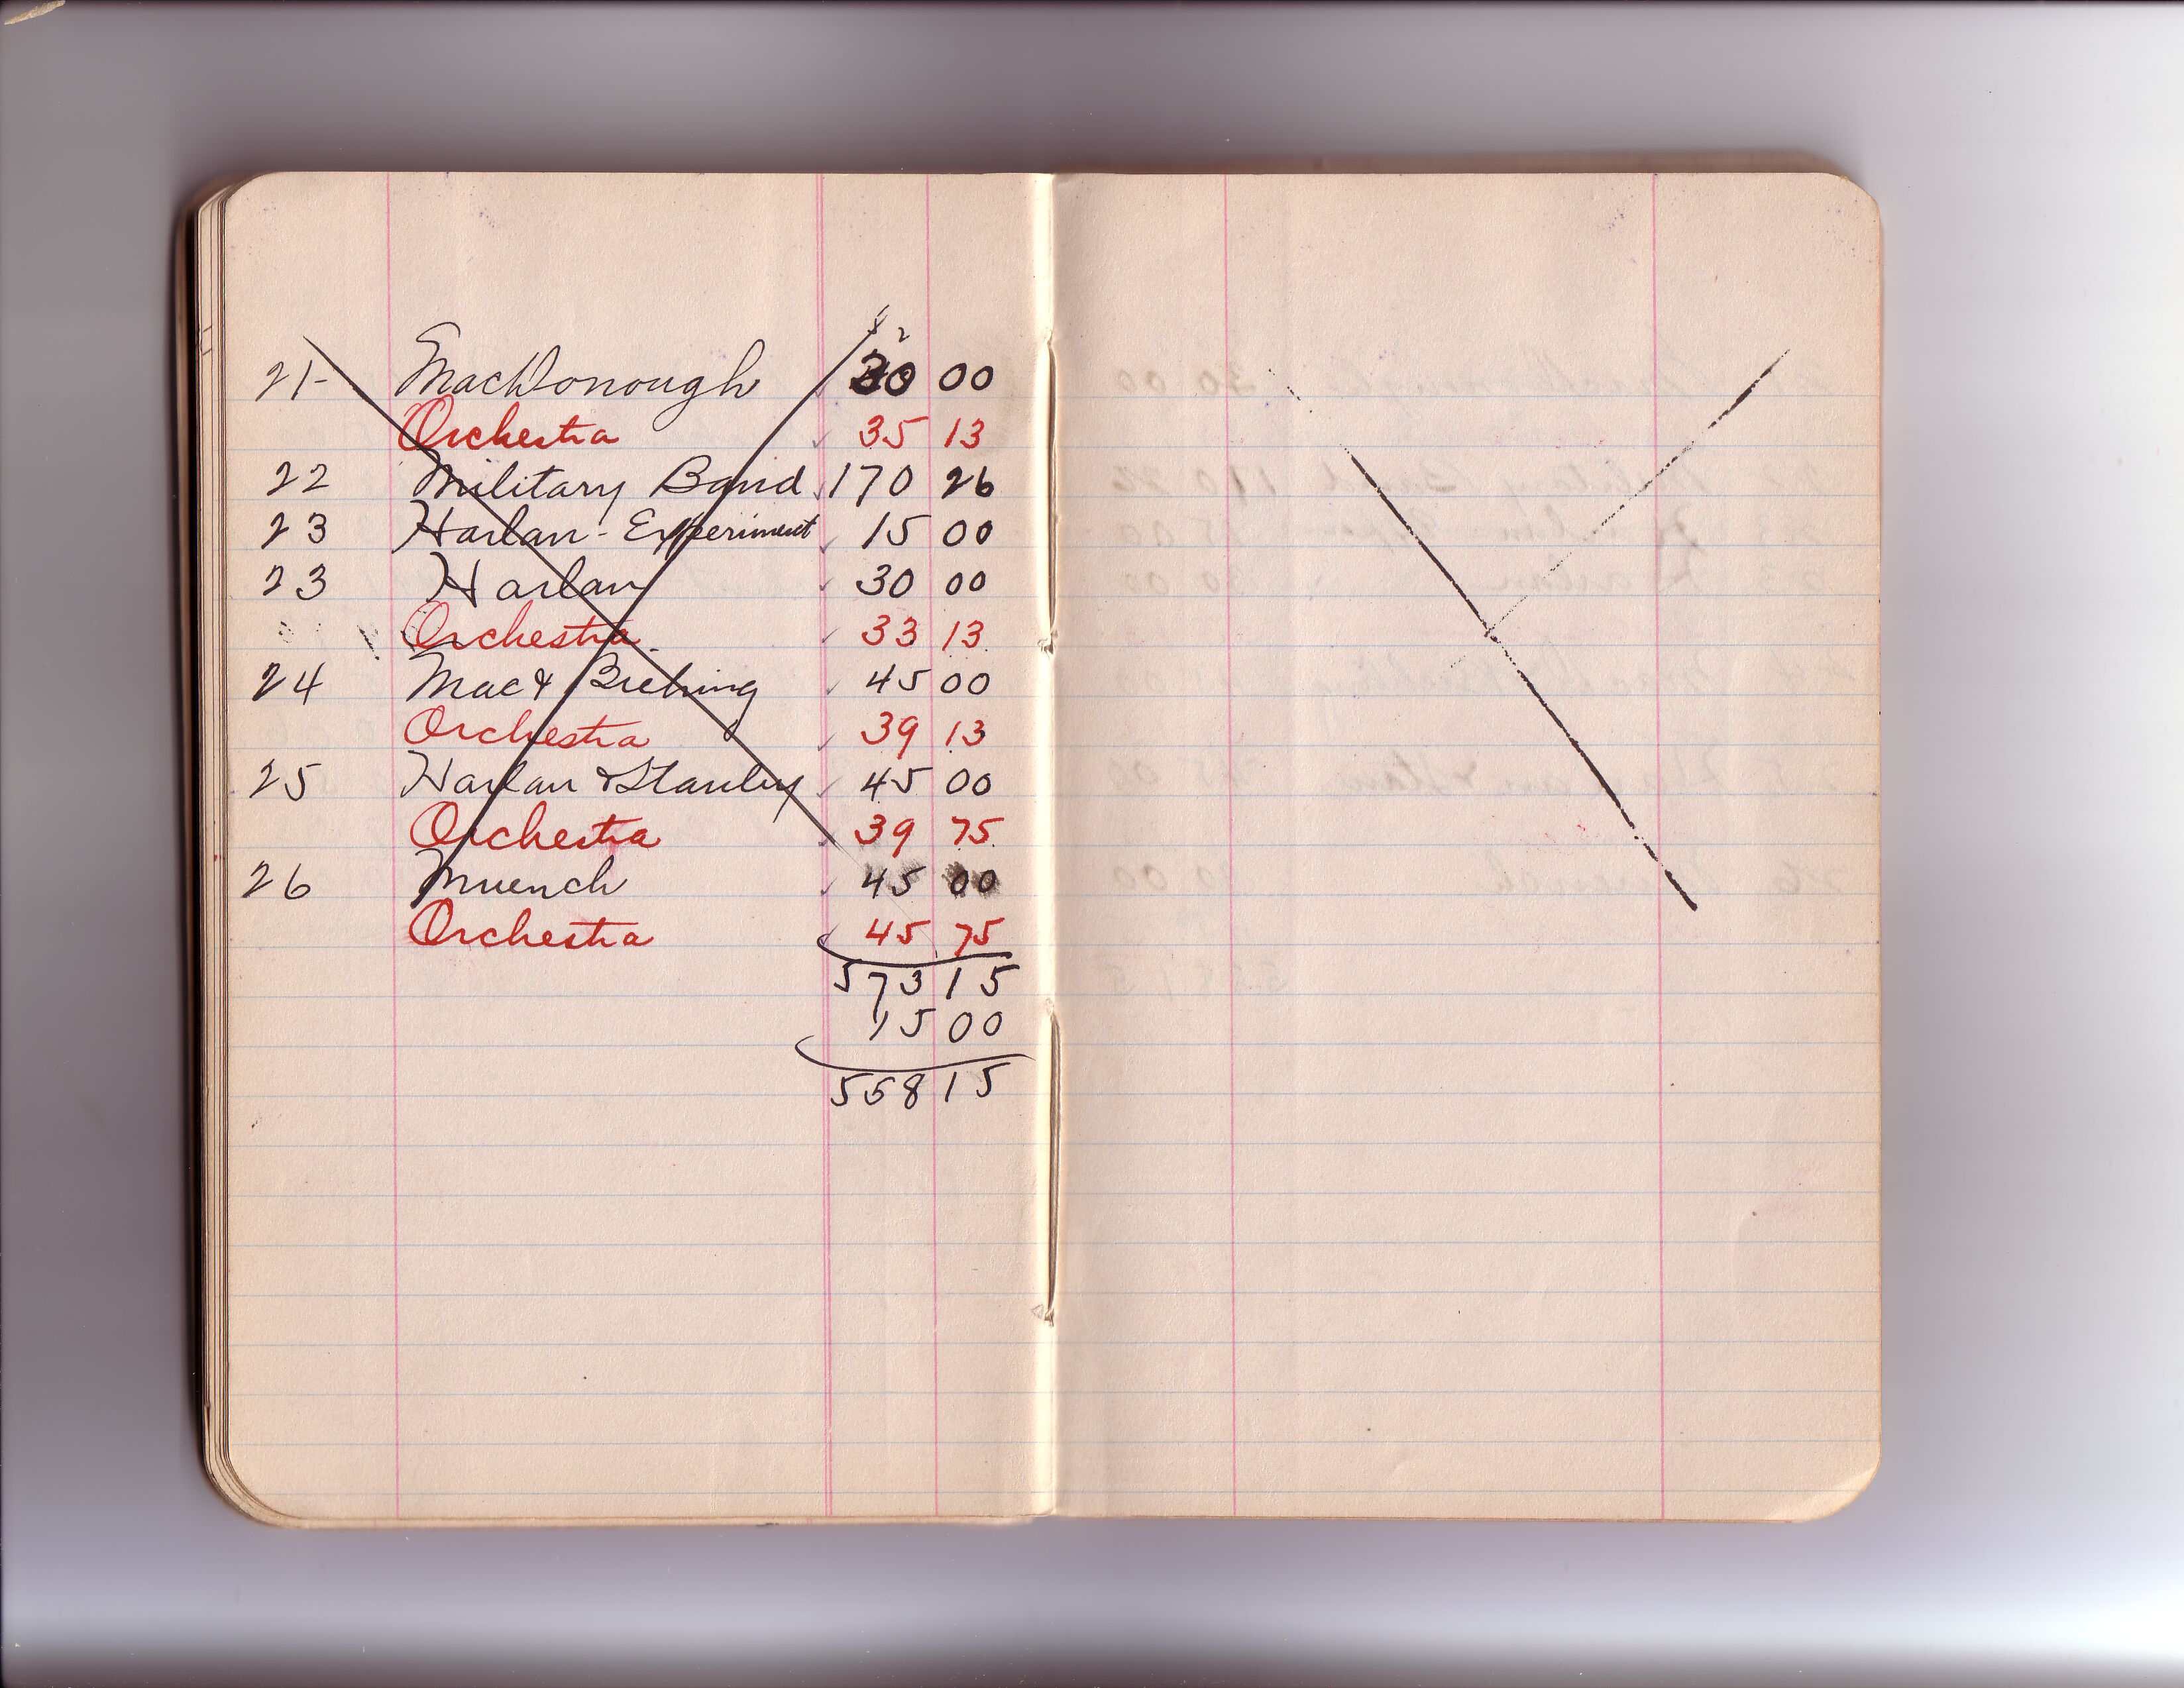 21- MacDonough 30 00
Orchestra 35 13
22 Military Band 170 26
23 Harlan - Experiment 15 00
23 Harlan 30 00
Orchestra 33 13
24 Mac & Biehing 45 00
Orchestra 39 13
25 Harlan & Stanley 45 00
Orchestra 39 75
26 Muench 45 00
Orchestra 45 75
573 15
15 00
558 15